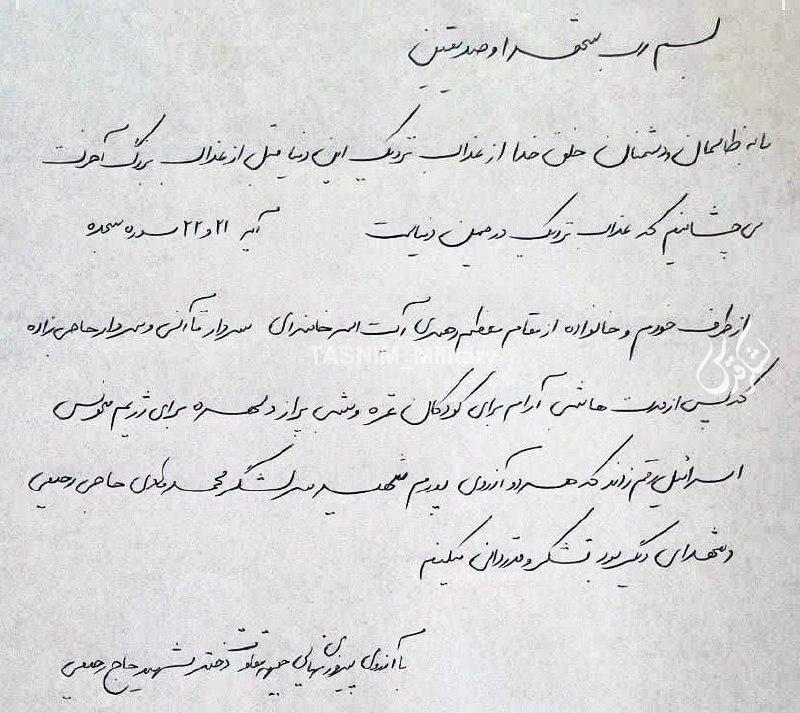 بسم رب الشهدا و صدیقین
ما به ظالمان و دشمنان خلق خدا از عذاب نزدیک این دنیا قبل از عذاب بزرگ آخرت
می چشانیم که عذاب نزدیک در همین دنیاست آیه ۲۱ و ۲۲ سوره سجده
از طرف خودم و خانواده از مقام معظم رهبری آیت الله خامنه‌ای سردار قاآنی و سردار حاجی زاده
که پس از مدت ها شبی آرام برای کودکان غزه و شبی پر از دلهره برای رژیم منحوس
اسرائیل رقم زدند که هر دو آرزوی پدرم شهید سرلشگر محمد هادی حاجی رحیمی
و شهدای دیگر بود تشکر و قدردانی میکنیم
با آرزوی پیروزی نهایی جبهه مقاومت دختر شهید حاج رحیمی
TASNIM_Military